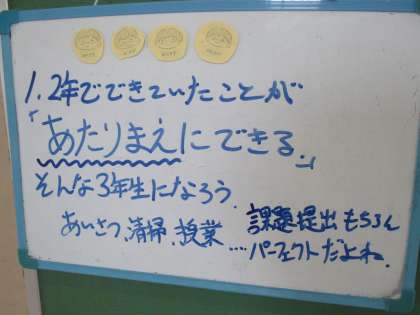 1、2年でできていたことが
「あたりまえにできる。」
そんな3年生になろう
あいさつ、清掃、授業
課題提出もちろん
‥‥パーフェクトだよね。